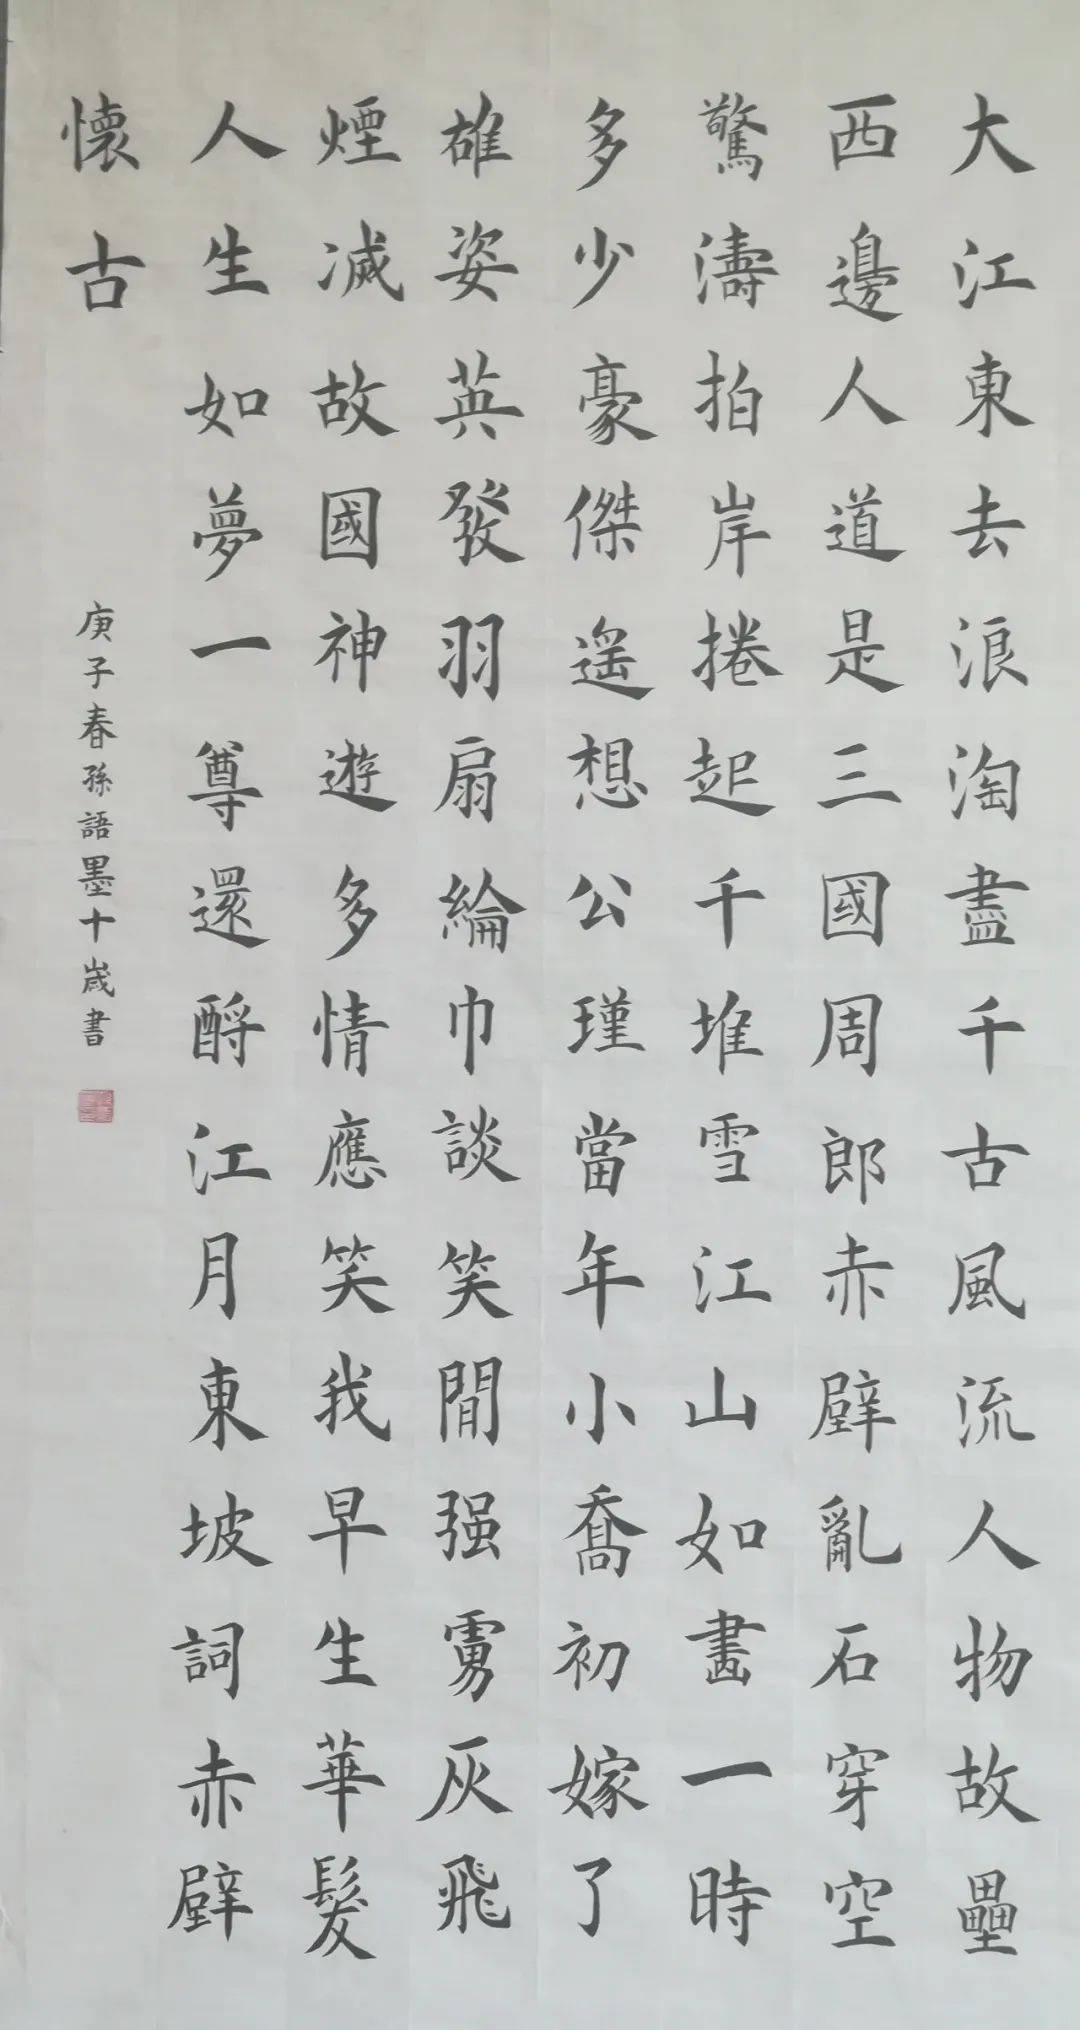 大江東去浪淘盡千古風流人物故壘
西邊人道是三國周郎赤壁亂石穿空
驚濤拍岸捲起千堆雪江山如畫一時
多少豪傑遥想公瑾當年小喬初嫁了
雄姿英發羽扇綸巾談笑間强虜灰飛
煙滅故國神遊多情應笑我早生華髮
人生如夢一尊還酹江月東坡詞赤壁
懷古
庚子春孫語墨十歲書